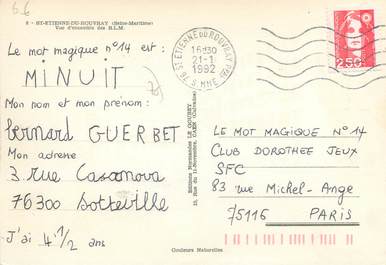 6.6
6 - ST-ETIENNE-DU-ROUVRAY (Seine-Maritime)
Vue d'ensemble des H.L.M.
Le mot magique n°14 est :
MINUIT
Mon nom et mon prénom :
bernard GUERBET
Mon adresse
3 rue Casanova
76300 Sotteville
J'ai 4 1/2 ans
Editions Normandes LE GOUBEY
Couleurs Naturelles
76 ST ETIENNE DU ROUVRAY PPAL
16H30
21-1
1992
S. MME
2,50
LE MOT MAGIQUE N°14
CLUB DOROTHEE JEUX
SFC
83 rue Michel-Ange
75116 PARIS